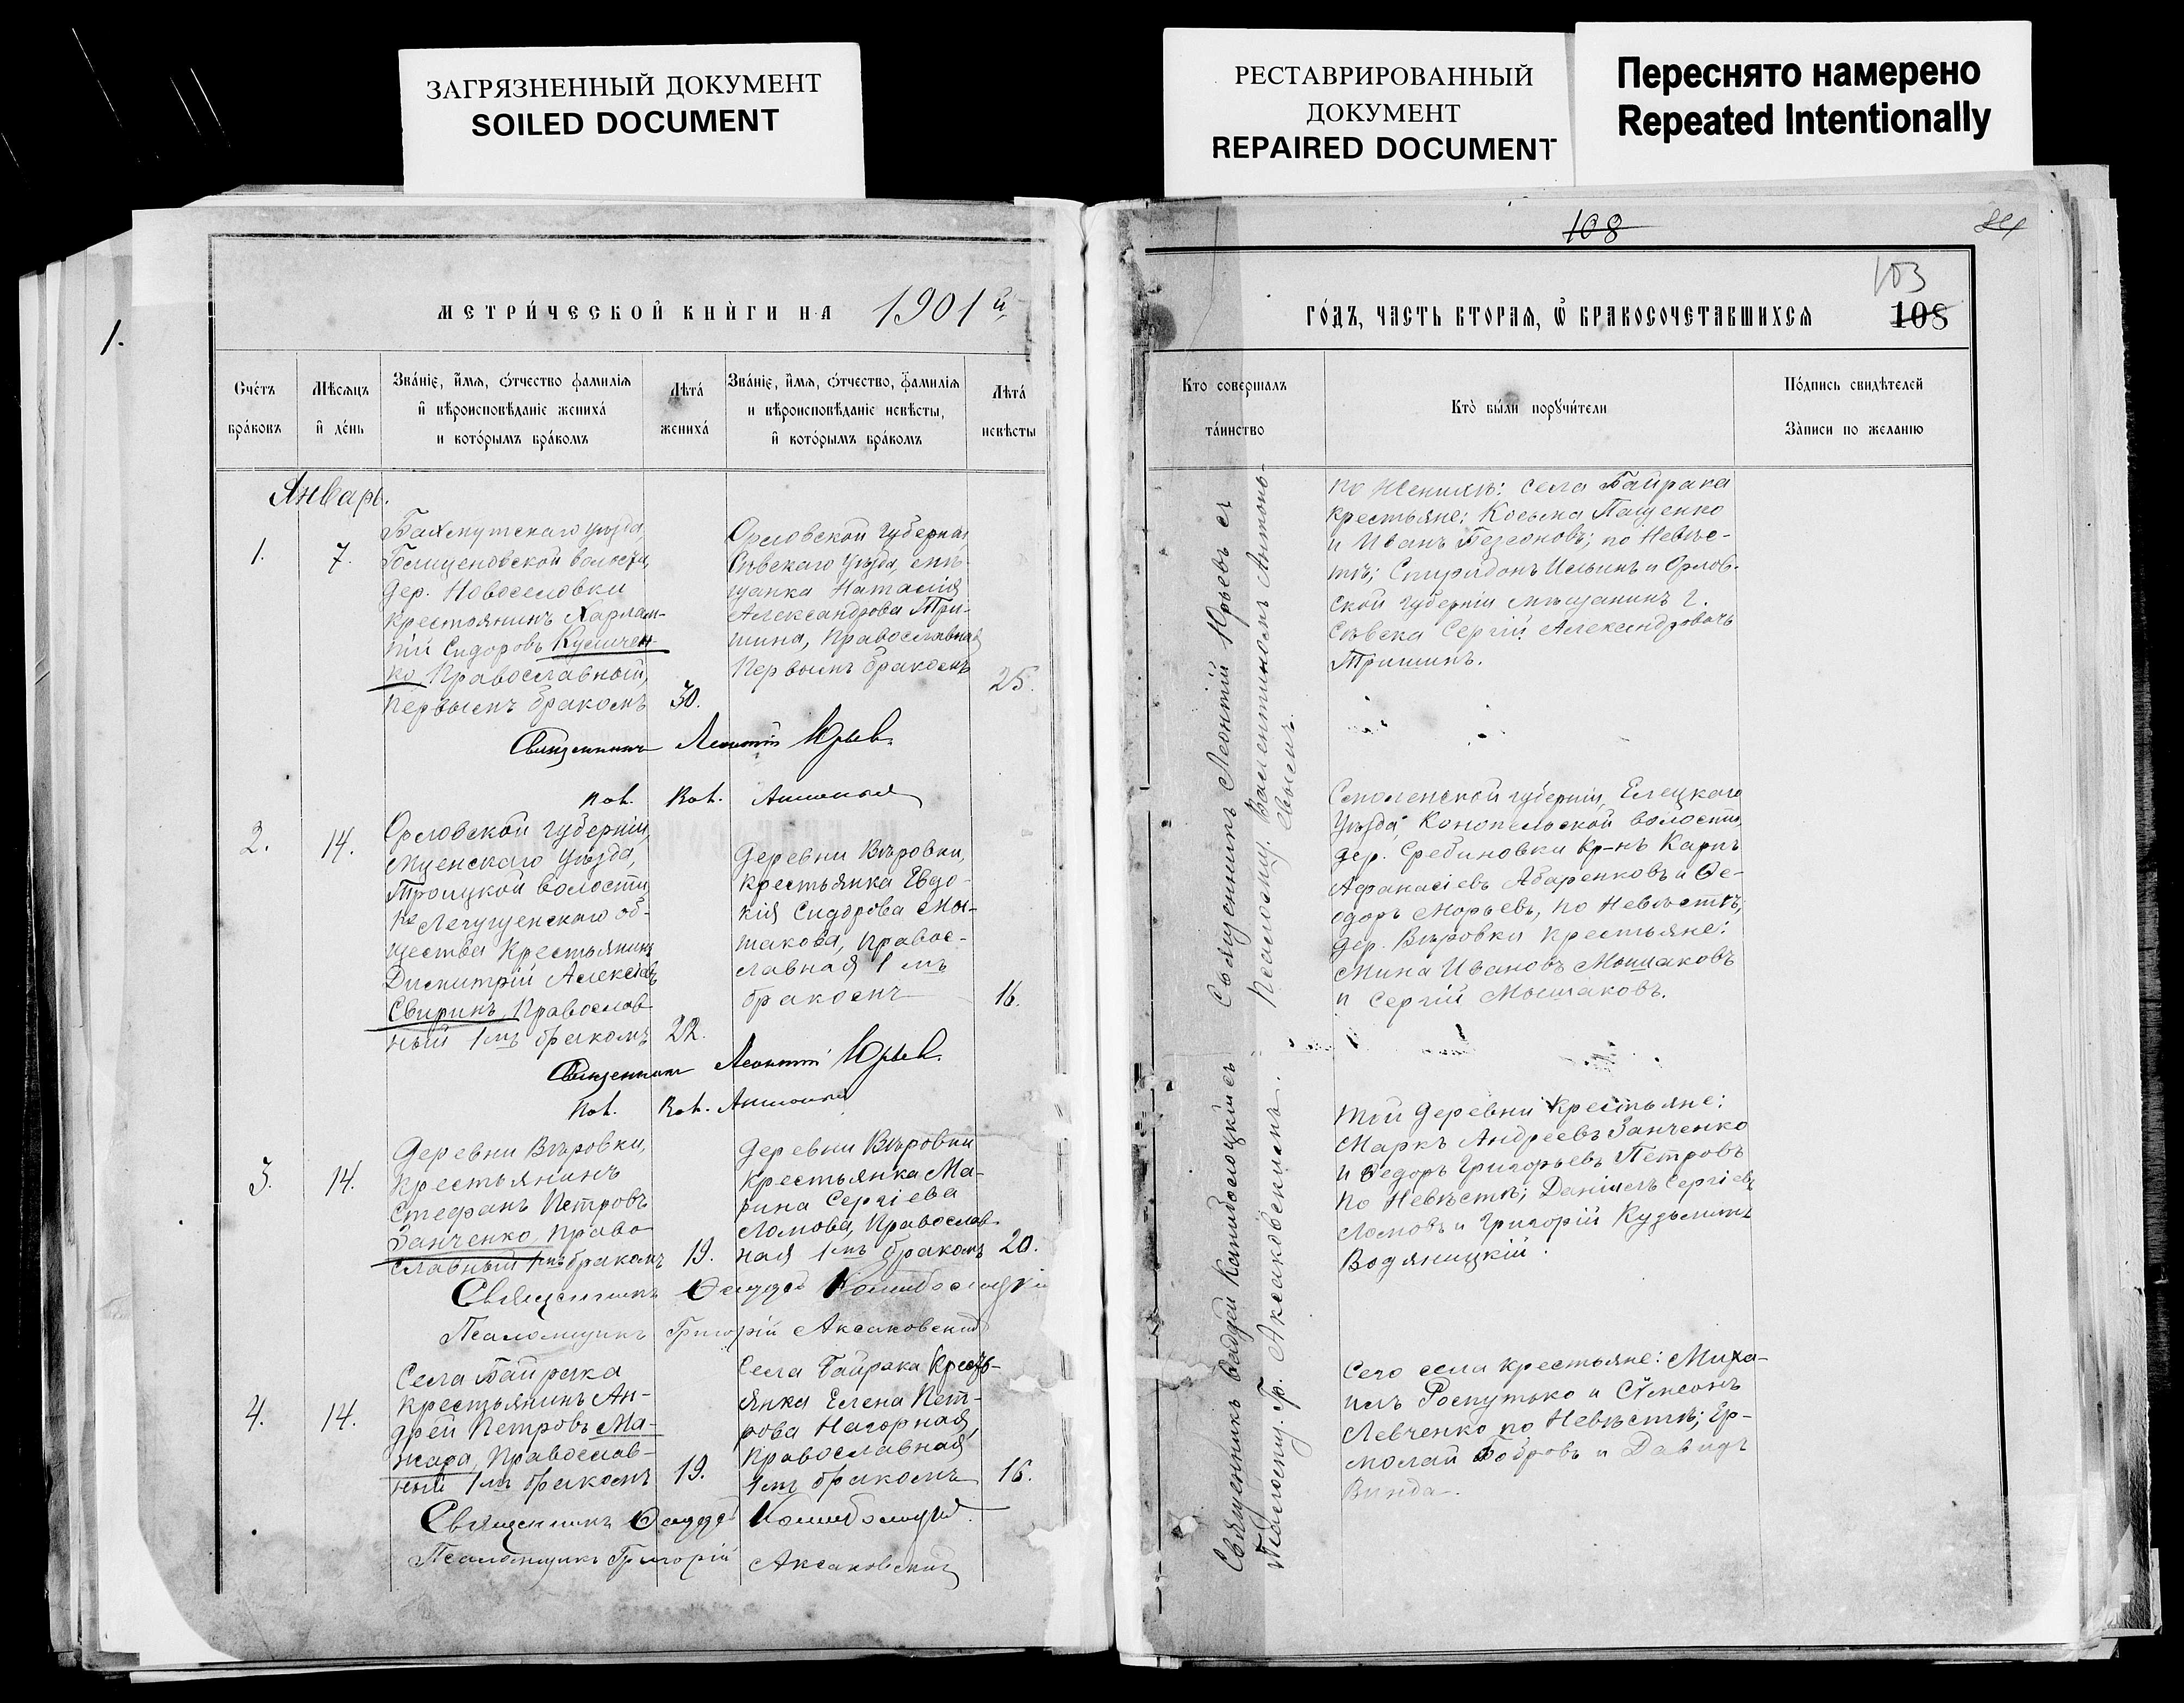 ЗАГРЯЗНЕННЫЙ ДОКУМЕНТ
SOILED DOCUMENT
РЕСТАВРИРОВАННЫЙ
ДОКУМЕНТ
REPAIRED DOCUMENT
Переснято намерено
Repeated Intentionally
1.
МЕТРИ́ЧЕСКОЙ КНИ́ГИ НА 1901 й
Сче́тъ
бра́ковъ
Мѣсяцъ
и де́нь
Зва́нїе, и́мя, о́тчество фамилїя
и вѣроисповѣданїе жениха́
и кото́рымъ бра́комъ
Лѣта́
жениха́
Зва́нїе, и́мя, о́тчество, фамилїя
и вѣроисповѣданїе невѣсты,
и кото́рымъ бра́комъ
Лѣта́
невѣсты
Январь.
1.
7.
Бахмутскаго уѣзда,
волости,
дер. Новоселовки
крестьянинъ Харлам-
пій Сидоровъ
ко, Православный,
первымъ бракомъ
30.
Орловской губерніи
Сѣвскаго уѣзда, мѣ-
щанка Наталія
Александрова Три-
шина, Православная
Первымъ бракомъ
25.
Священникъ Леонтій Юрьевъ
2.
14.
Орловской губерніи,
Мценскаго уѣзда,
Троицкой волости
об-
щества крестьянинъ
Димитрій Алексѣевъ
Свиринъ, Православ
ный 1мъ бракомъ
22.
Деревни Вѣровки,
крестьянка Евдо-
кія Сидорова Мы-
шакова, Правос-
лавная 1 мъ
бракомъ
16.
Священникъ Леонтій Юрьевъ
3.
14.
Деревни Вѣровки,
крестьянинъ
Стефанъ Петровъ
Занченко, Право
славный 1мъ бракомъ
19.
Деревни Вѣровки
крестьянка Ма-
рина Сергіева
Ломова, Православ
ная 1мъ бракомъ
20.
Священникъ
Псаломщикъ Григорій Аксаковскій
4.
14.
Села Байрака
крестьянинъ Ан-
дрей Петровъ Ма-
жара, Православ-
ный 1мъ бракомъ
19.
Села Байрака кресть-
янка Елена Пет-
рова Нагорная,
Православная
1мъ бракомъ
16.
Священникъ
Псаломщикъ Григорій Аксаковскій
108
84
103
108
ГО́ДЪ, ЧАСТЬ ВТОРАЯ, Ѡ БРАКОСОЧЕТАВШИХСЯ
Кто соверша́лъ
та́инство
Кто̀ бы́ли порꙋчи́тели
По́дпись свидѣтелей
За́писи по жела́нїю
Священникъ Леонтій Юрьевъ съ
Псаломщ. Валентиномъ Антонь-
евымъ.
Псаломщ. Гр. Аксаковскимъ.
По Женихѣ: села Байрака
крестьяне: Косьма Пащенко
и Иванъ по Невѣс-
тѣ; Спиридонъ Ильинъ и Орлов-
ской губерніи мѣщанинъ г.
Сѣвска Сергій Александровъ
Тришинъ.
Смоленской губерніи, Елецкаго
уѣзда, волости,
дер. кр-нъ Карпъ
Афанасіевъ и Ѳе-
одоръ по Невѣстѣ;
дер. Вѣровки крестьяне:
Мина Ивановъ Мышаковъ
и Сергій Мышаковъ.
той деревни крестьяне:
Маркъ Андреевъ Занченко
и Ѳедоръ Григорьевъ Петровъ
По Невѣстѣ; Даніилъ Сергіевъ
Ломовъ и Григорій Кузьминъ
Водяницкій.
Сего села крестьяне: Миха-
илъ Роспутько и Сѵмеонъ
Левченко по Невѣстѣ; Ер-
молай Бобровъ и Давидъ
Винда.